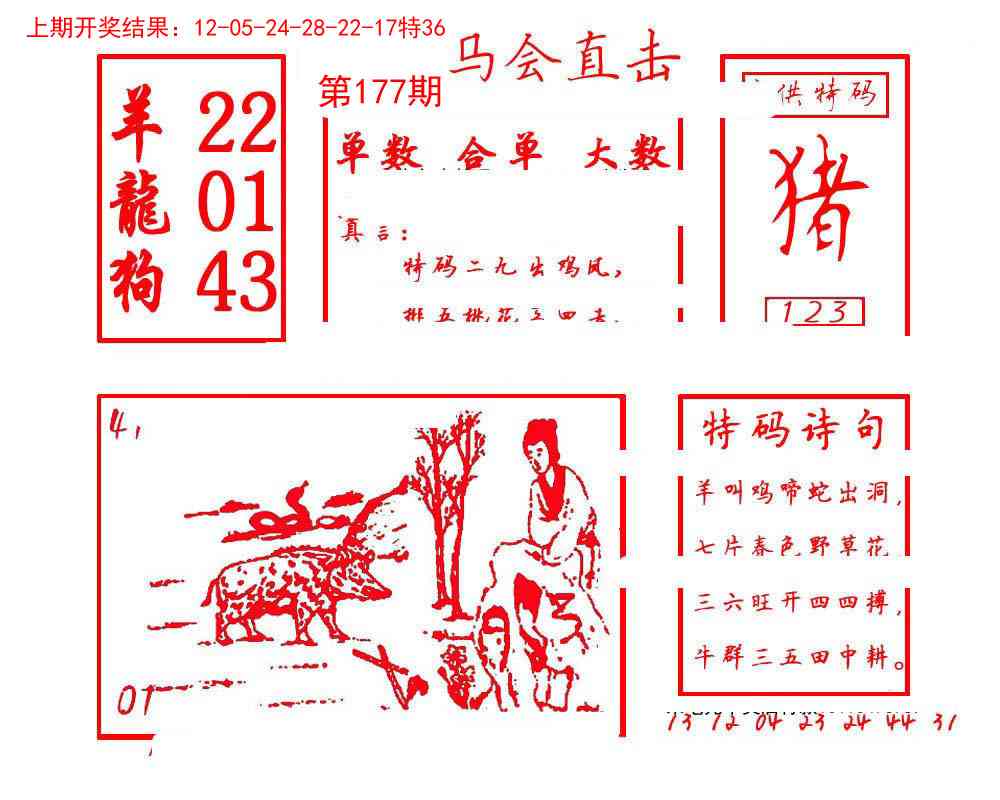 上期开奖结果：12-05-24-28-22-17特36
马会直击
第177期
羊 22
龍 01
狗 43
单数 合单 大数
真言：
特码二九出鸡凤，
供特码
猪
123
4,
01
特码诗句
羊叫鸡啼蛇出洞，
七片春色野草花
三六旺开四四搏，
牛群三五田中耕。
13 12 04 23 24 44 31